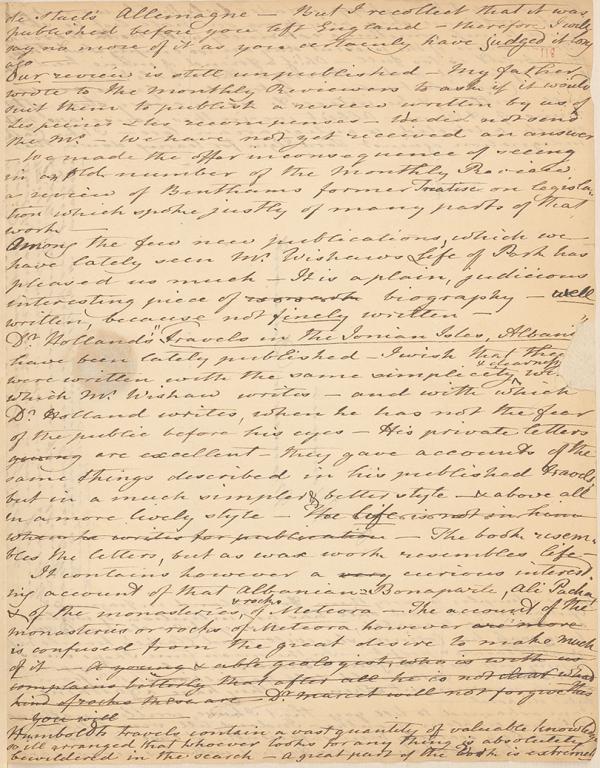 de Staels Allemagne — But I recollect that it was
published before you left England — therefore I will
say no more of it as you certainly have judged it long
ago —
Our review is still unpublished — My father
wrote to the Monthly Reviewers to ask if it would
suit them to publish a review written by us of
his recompenses — he did not send
the Ms. — we have not yet received an answer
— We made the offer in consequence of seeing
in an old number of the Monthly Review
a review of Benthams former Treatise on legisla-
tion which spoke justly of many parts of that
work —
Among the few new publications, which we
have lately seen Mr. Wishaws Life of Park has
pleased us much — It is a plain, judicious
interesting piece of research biography — well
written, because not finely written —
Dr Holland's "Travels in the Ionian Isles, Albani
have been lately published — I wish that they
were written with the same simplicity & clearness
which Mr. Wishaw writes — and with which
Dr. Holland writes, when he has not the fear
of the public before his eyes — His private letters
giving are excellent they gave accounts of the
same things described in his published travels,
but in a much simpler & better style — & above all
in a more lively style — The life is not in them
when he writes for publication — The book resem-
bles the letters, but as wax work resembles life —
It contains however a very curious interest-
ing account of that Albanian Bonaparte, Ali Pacha,
& of the monasteries, & rocks of Meteora — The account of the
monasteries or rocks of Meteora however are more
is confused from the great desire to make much
of it — A young & able geologist, who is with us
complains bitterly that after all he is not clear what
kind of rocks these are — Dr. Marcet will not forgive this
— You will
Humboldts travels contain a vast quantity of valuable knowledge
so ill arranged that whoever looks for any thing is absolutely
bewildered in the search — a great part of the Book is extremely